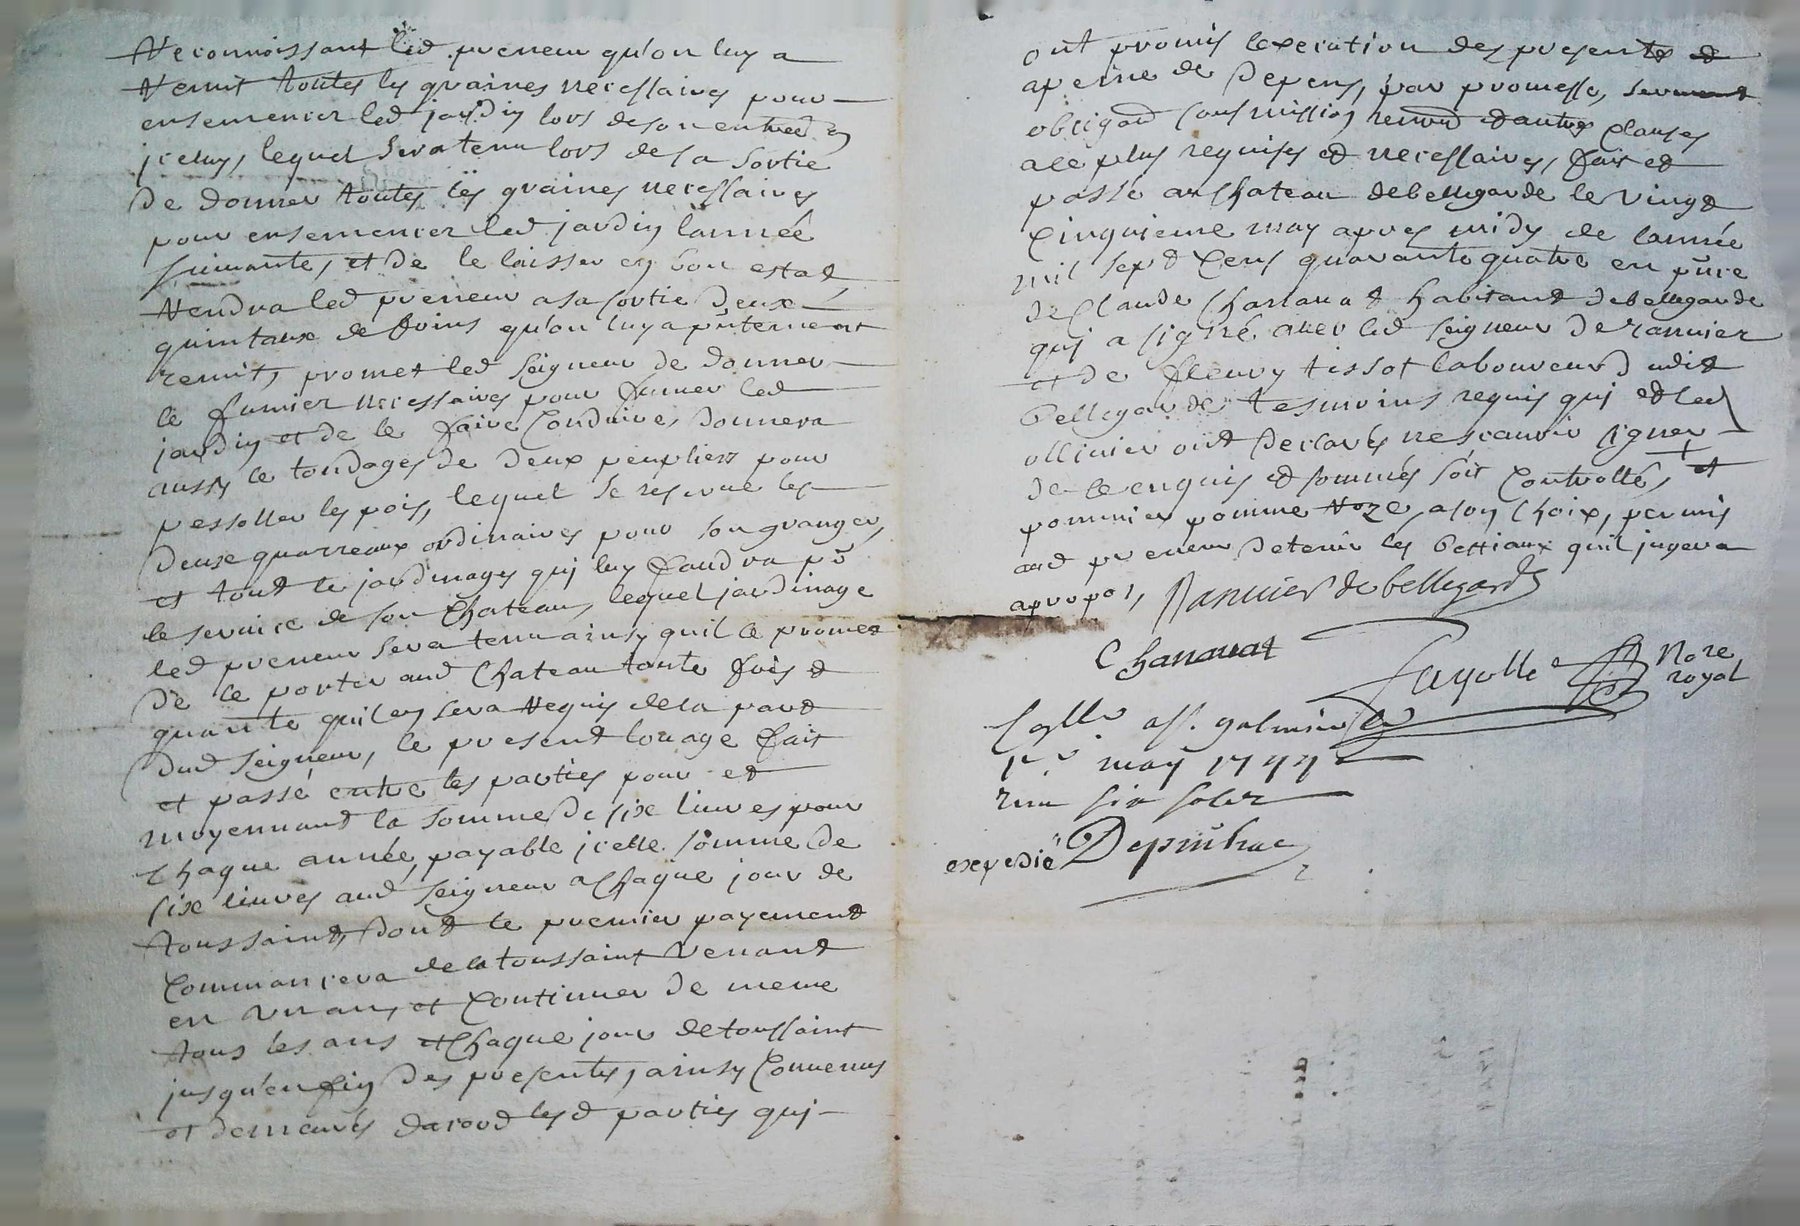 Reconnoissant led. preneur qu'on luy a
Remit toutes les graines necessaires pour
ensemencer led jardin lors de son entrée en
jceluy, lequel sera tenu lors de sa sortie
de donner toutes les graines necessaires
pour ensemencer led jardin lannée
suivante, et de le laisser en bon estat,
Rendra led preneur a sa sortie deux
quintaux de foins qu'on luy a pntement
remit, promet led seigneur de donner
le fumier necessaires pour fumer led
jardin et de le faire Conduire, donnera
aussy le tondages de deux peupliers pour
pessoller les pois, lequel se reserve les
deux quarreaux ordinaires pour son granger,
et tout le jardinages qui luy faudra pr
le service de son Chateau, lequel jardinage
led preneur sera tenu ainsy quil le promet
de le porter aud Chateau toute fois et
quante quil en sera Requis de la part
dud seigneur, le present louage fait
et passé entre les parties pour et
moyennant la somme de six livres pour
Chaque année, payable jcelle somme de
six livres aud seigneur a Chaque jour de
toussaint, dont le premier payement
Commancera de la toussaint Venant
en Un an, et Continuer de meme
tous les ans et Chaque jour de toussaint
jusqu'en fin des presentes, ainsy Convenus
et demeurés dacord lesd parties qui
ont promis lexecution des presentes et
a peine de depens, par promesse, serment
obligaon sousmission renon et autres Clauses
a ce plus requises et necessaires, fait et
passé au Chateau de bellegarde le Vingt
Cinquieme may apres midy de lannée
mil sept Cens quarante quatre en pnce
de Claude Chanauat habitant de bellegarde
qui a signé avec led seigneur de ranuier
et de fleury tissot laboureur dudit
bellegarde tesmoins requis qui et led
ollinier ont declarés ne scavoir signer
de ce enquis et sommés soit Controllé, et
pommier pomme Roze, a son Choix, permis
aud preneur de tenir les bestiaux quil jugera
apropos, Ranuier de bellegarde
Chanauat
fayolle Nore
royal
Collé a St. galmier le
may 1744
six solz
expedié